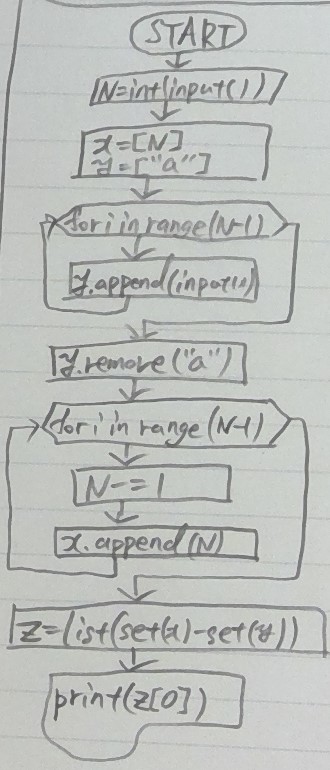 START
N=int(input())
x=[N]
y=["a"]
for i in range(N-1)
y.append(input())
y.remove("a")
for i in range(N-1)
N-=1
x.append(N)
z=list(set(x)-set(y))
print(z[0])